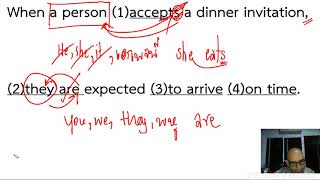 When a person (1)accepts a dinner invitation,
He, she, it, she eats
(2)they are expected (3)to arrive (4)on time.
You, we, they, are